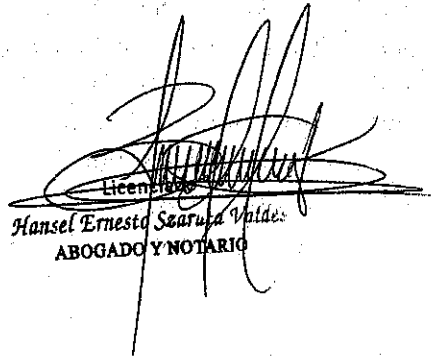 Licenciado
Hansel Ernesto Szarata Valdes
ABOGADO Y NOTARIO